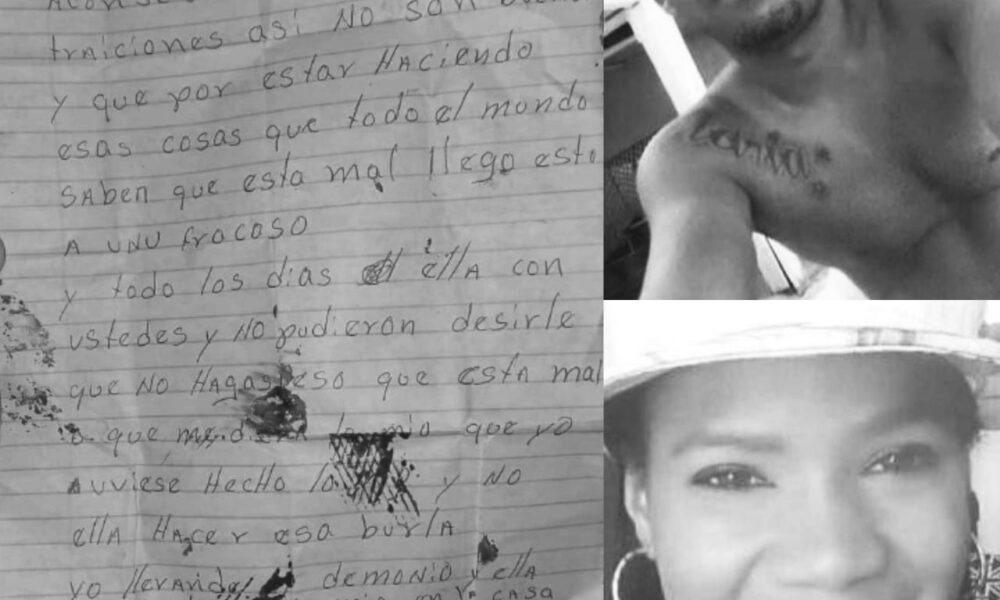 traiciones así NO SON
y que por estar HAciendo
esas cosas que todo el mundo
SAben que esta mal llego esto
A UNU fracoso
y todo los dias ella con
ustedes y NO pudieron desirle
que NO HAgas eso que esta mal
o que lo mio que yo
AUViese HecHo lo y NO
ellA HAcer esa burlA
yo llevando demonio y ella
CASA